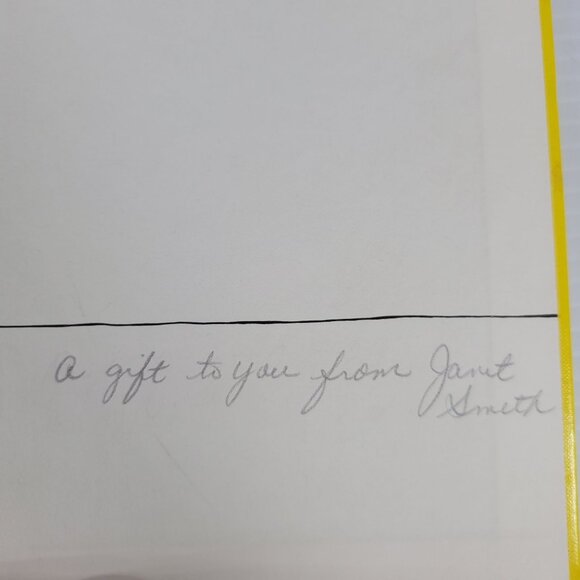 A gift to you from Janet
Smith